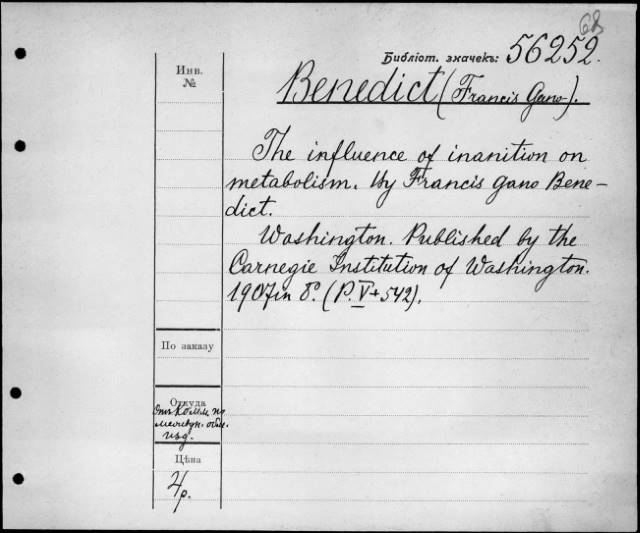 68
Библіот. значекъ: 56252.
Инв.
№
Benedict (Francis Gano).
The influence of inanition on
metabolism. by Francis Gano Bene-
dict.
Washington. Published by the
Carnegie Institution of Washington.
1907 in 8°. (P. V + 542).
По заказу
Откуда
Отъ Комм. по
обм.
изд.
Цѣна
4 р.